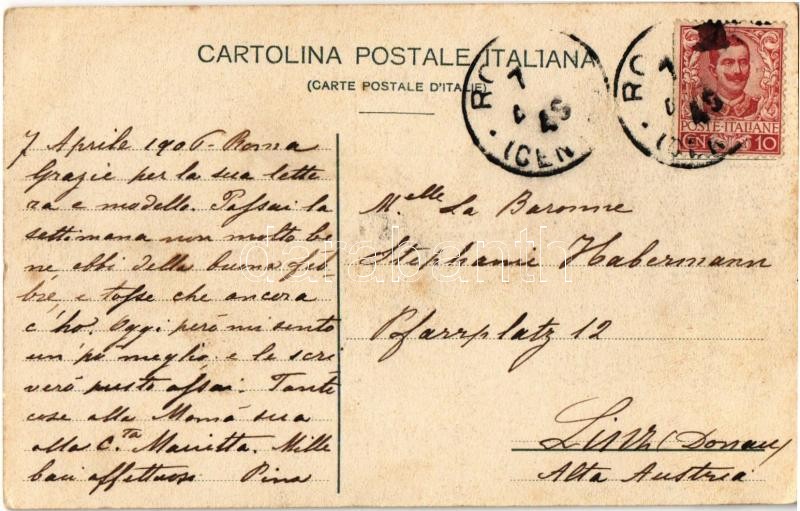 CARTOLINA POSTALE ITALIANA
(CARTE POSTALE D'ITALIE)
RO
7
45
(CEN
RO
7
45
(CEN
POSTE ITALIANE
CENT 10
7 Aprile 1906 - Roma
Grazie per la sua lette
ra e modello. Passai la
settimana non molto be
ne ebbi della buona feb
bre, e tosse che ancora
c'ho. Oggi però mi sento
un pò meglio e le scri
verò presto assai. Tante
cose alla Mamá sua
alla C.ta Marietta. Mille
baci affettuosi Pina
M.elle La Baronne
Stephanie Habermann
Pfarrplatz 12
Linz (Donau)
Alta Austria
darabanth